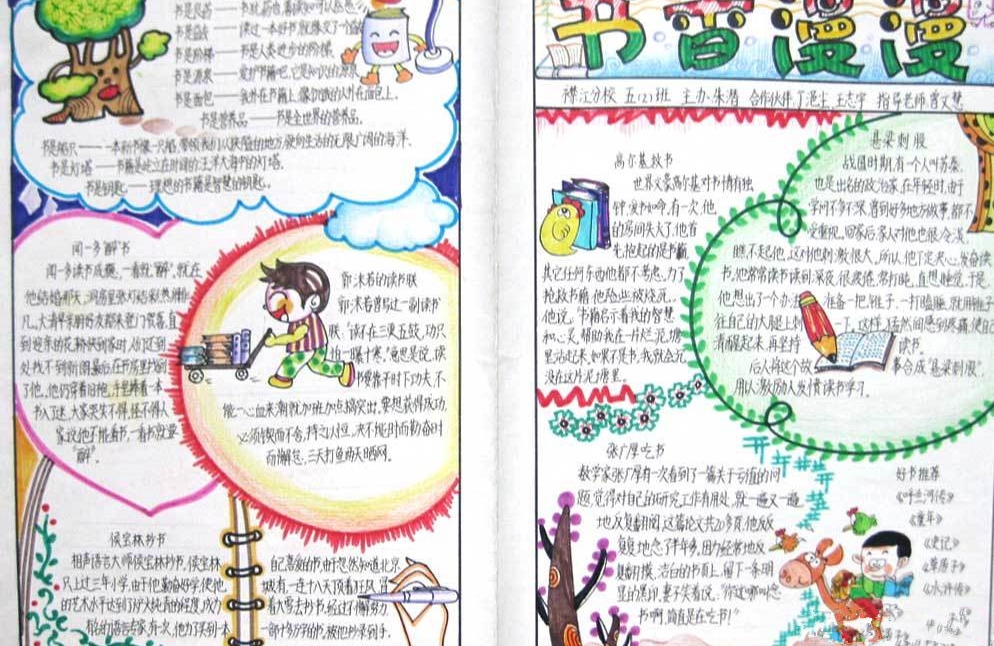 书是良药——书
书是阶梯——书是人类进步的阶梯
书是面包——我扑在书籍上,像饥饿的人扑在面包上。
书是营养品——书是全世界的营养品。
书是船只——一本新书像一只船,带领我们从狭隘的地方,驶向生活的无限广阔的海洋.
书是灯塔——书籍是屹立在时间的汪洋大海中的灯塔.
书是钥匙——理想的书籍是智慧的钥匙。
闻一多醉书
闻一多读书成瘾,一看就"醉",就在
他结婚那天,洞房里张灯结彩,热闹非
凡。大清早亲朋好友都来登门贺喜,直
到迎亲的花轿快到家时,人们还到
处找不到新郎。最后在书房里找到
了他,他仍穿着旧袍,手里捧着一本
书入了迷。大家哭笑不得,怪不得人
家说他不能看书,一看书就要
"醉"。
郭沫若的读书联
郭沫若曾写过一副读书
联:"读不在三更五鼓,功只
怕一曝十寒。"意思是说,读
书要靠平时下功夫,不
能一心血来潮就加班加点搞突出,要想获得成功,
必须锲而不舍,持之以恒,决不能时而勤奋时
而懈怠,三天打鱼两天晒网。
侯宝林抄书
相声语言大师侯宝林抄书,侯宝林
只上过三年小学,由于他勤奋好学,使他
的艺术水平达到了炉火纯青的程度,成为
有名的语言专家,有一次,他为了买到一本
自己喜爱的书
城,有一连十八天顶着狂风,冒
着大雪去抄书,经过不懈努力
一部十多万字的书,被他抄录到手.
书香漫漫
襟江分校 五(2)班 主办:朱潜 合作伙伴:丁浥尘,王志宇 指导老师:
高尔基救书
世界文豪高尔基对书情有独
钟,爱书如命,有一次,他
的房间失火了,他首
先抱起的是书籍,
其它任何东西他都不考虑,为了
抢救书籍,他险些被烧死,
他说:"书籍启示着我的智慧
和心灵,帮助我在一片烂泥塘
里站起来,如果不是书,我就会沉
没在这片泥塘里。
悬梁刺股
战国时期,有一个人叫苏秦,
也是出名的政治家,在年轻时,由于
学问不多不深,曾到好多地方做事,都不
受重视,回家后,家人对他也很冷淡,
瞧不起他,这对他刺激很大,所以,他下定决心,发奋读
书,他常常读书读到深夜,很疲倦,常打盹,直想睡觉,于是
他想出了个办法,准备一把锥子,一打瞌睡,就用锥子
往自己的大腿上刺一下,这样,猛然间感到疼痛,使自己
清醒起来,再坚持读书。
后人将这个故事合成"悬梁刺股",
用以激励人发愤读书学习。
张广厚吃书
数学家张广厚有一次看到了一篇关于亏值的问
题,觉得对自己的研究工作有用处,就一遍又一遍
地反复翻阅,这篇论文共20多页,他反
反复复地念了半年多,因为经常地反
复翻摸,洁白的书页上,留下一条明
显的黑印,妻子笑着说:"你这哪叫念
书啊,简直是在吃书!"
好书推荐
《呼兰河传》
《童年》
《史记》
《草房子》
《水浒传》